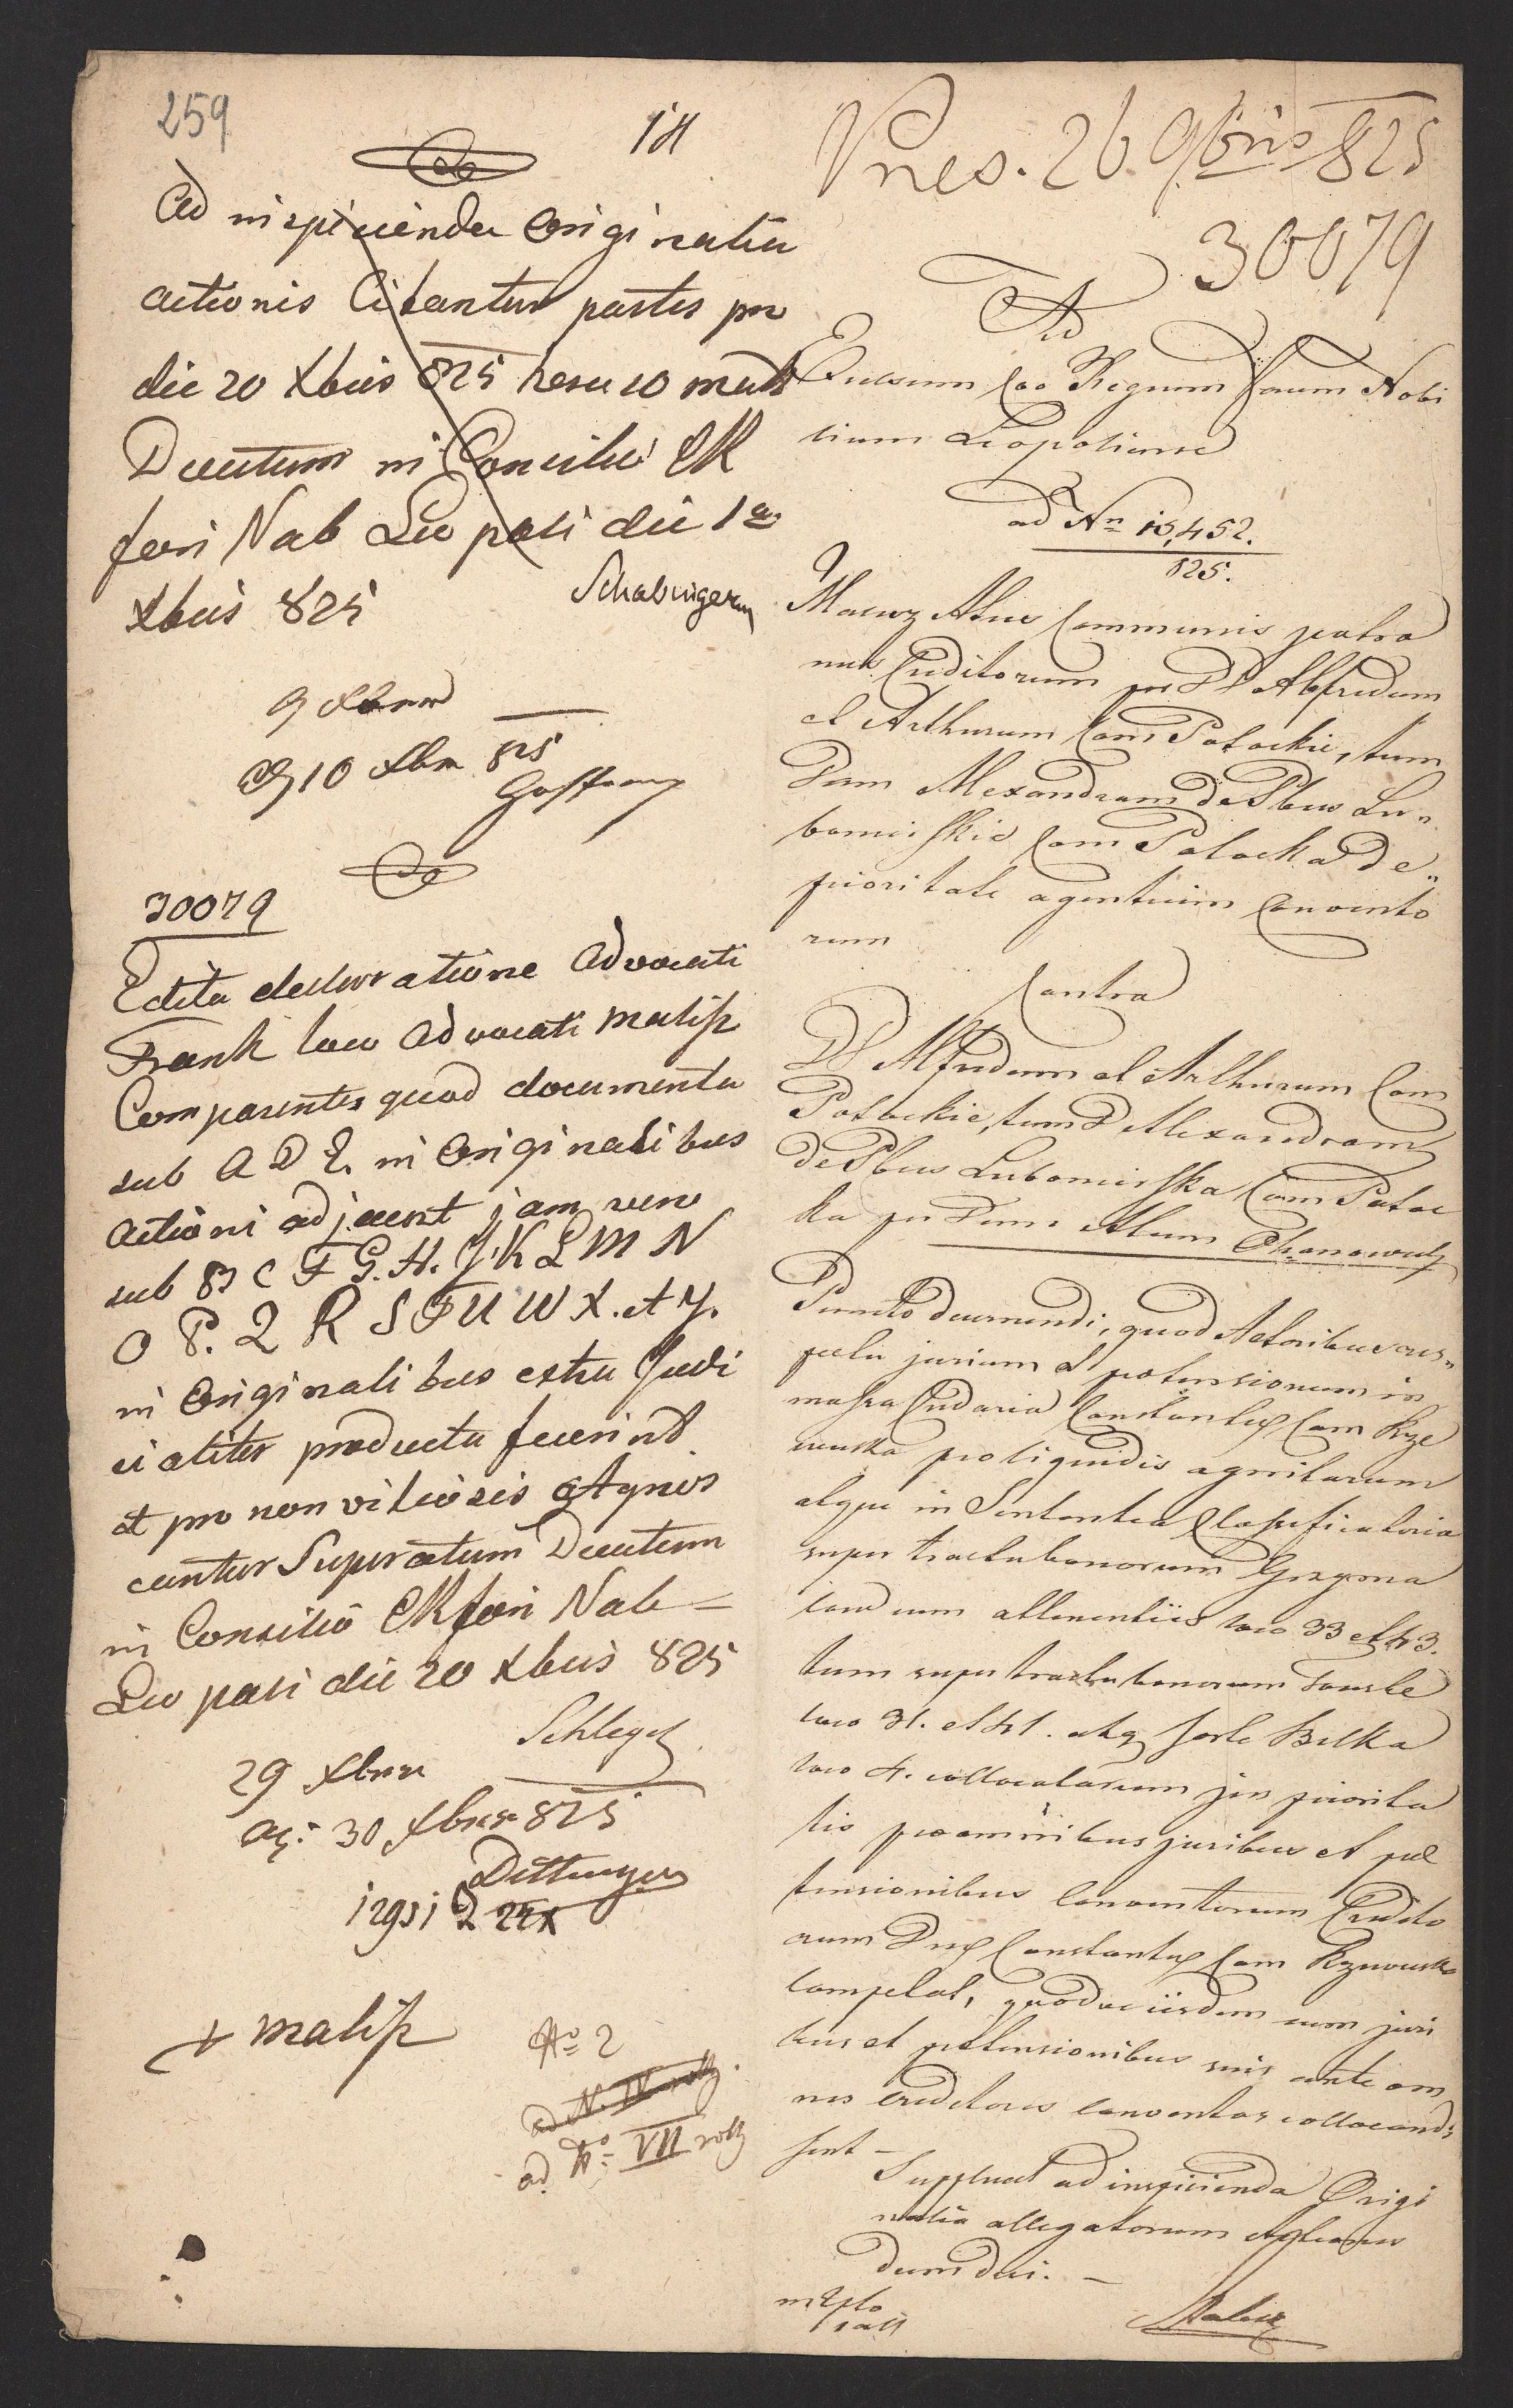 259
14
Ad inspicienda Originalia
actionis Citantur partes pro
die 20 Xbris 825 hora 10 mat
Decretum in Consilio CR
fori Nob Leopoli die 1a
Xbris 825
9 Xbris
10 Xbr 825
30079
Edita declaratione Advocati
Frank loco Advocati Malisz
Comparentis quod documenta
sub A D E. in Originalibus
actioni adjacent jam vero
sub B C F G. H. J. K L M N
O P. Q R S T U W X. et Y.
in Originalibus extra Judi
cialiter producta fuerint
et pro non vitiosis Agnos
cantur Superatum Decretum
in Consilio CR fori Nob
Leopoli die 20 Xbris 825
Schlegel
29 Xbris
30 Xbris 825
+ Malisz
No 2
ad N. IV
ad No VII
Pres. 26 9bris 825
30079
Ad
Excelsum Caes Regium Forum Nobi
lium Leopoliense
ad Nr 15,452.
825.
Advus Communis patro
nus Creditorum per DD Alfredum
et Arthurum Com Potockie, tum
Dam Alexandram de Pbus Lu„
bomirskie Com Potocka De„
prioritate agentium Convento
rum
Contra
DD Alfredum et Arthurum Com
Potockie, tum D Alexandram
de Pbus Lubomirska Com Potoc
ka per Dum Advum
Puncto decernendi, quod Actoribus res„
pectu jurium et pretensionum in
massa Cridaria Constantiae Com Rze
wuska pro liquidis agnitarum
atque in Sententia Classificatoria
super tractu bonorum Grzyma
low cum attinentiis loco 33 et 43.
tum super tractu bonorum Touste
loco 31. et 41. atq sorte Bilka
loco 4. collocatarum jus priorita
tis prae omnibus juribus et prae
tensionibus Conventorum Credito
rum Dnae Constantiae Com Rzewuska
competat, quodve iisdem cum juri
bus et pretensionibus suis ante om
nes creditores conventos collocandi
sint —
Supplicat ad inspicienda Origi
nalia allegatorum
dum dici. —
Malisz